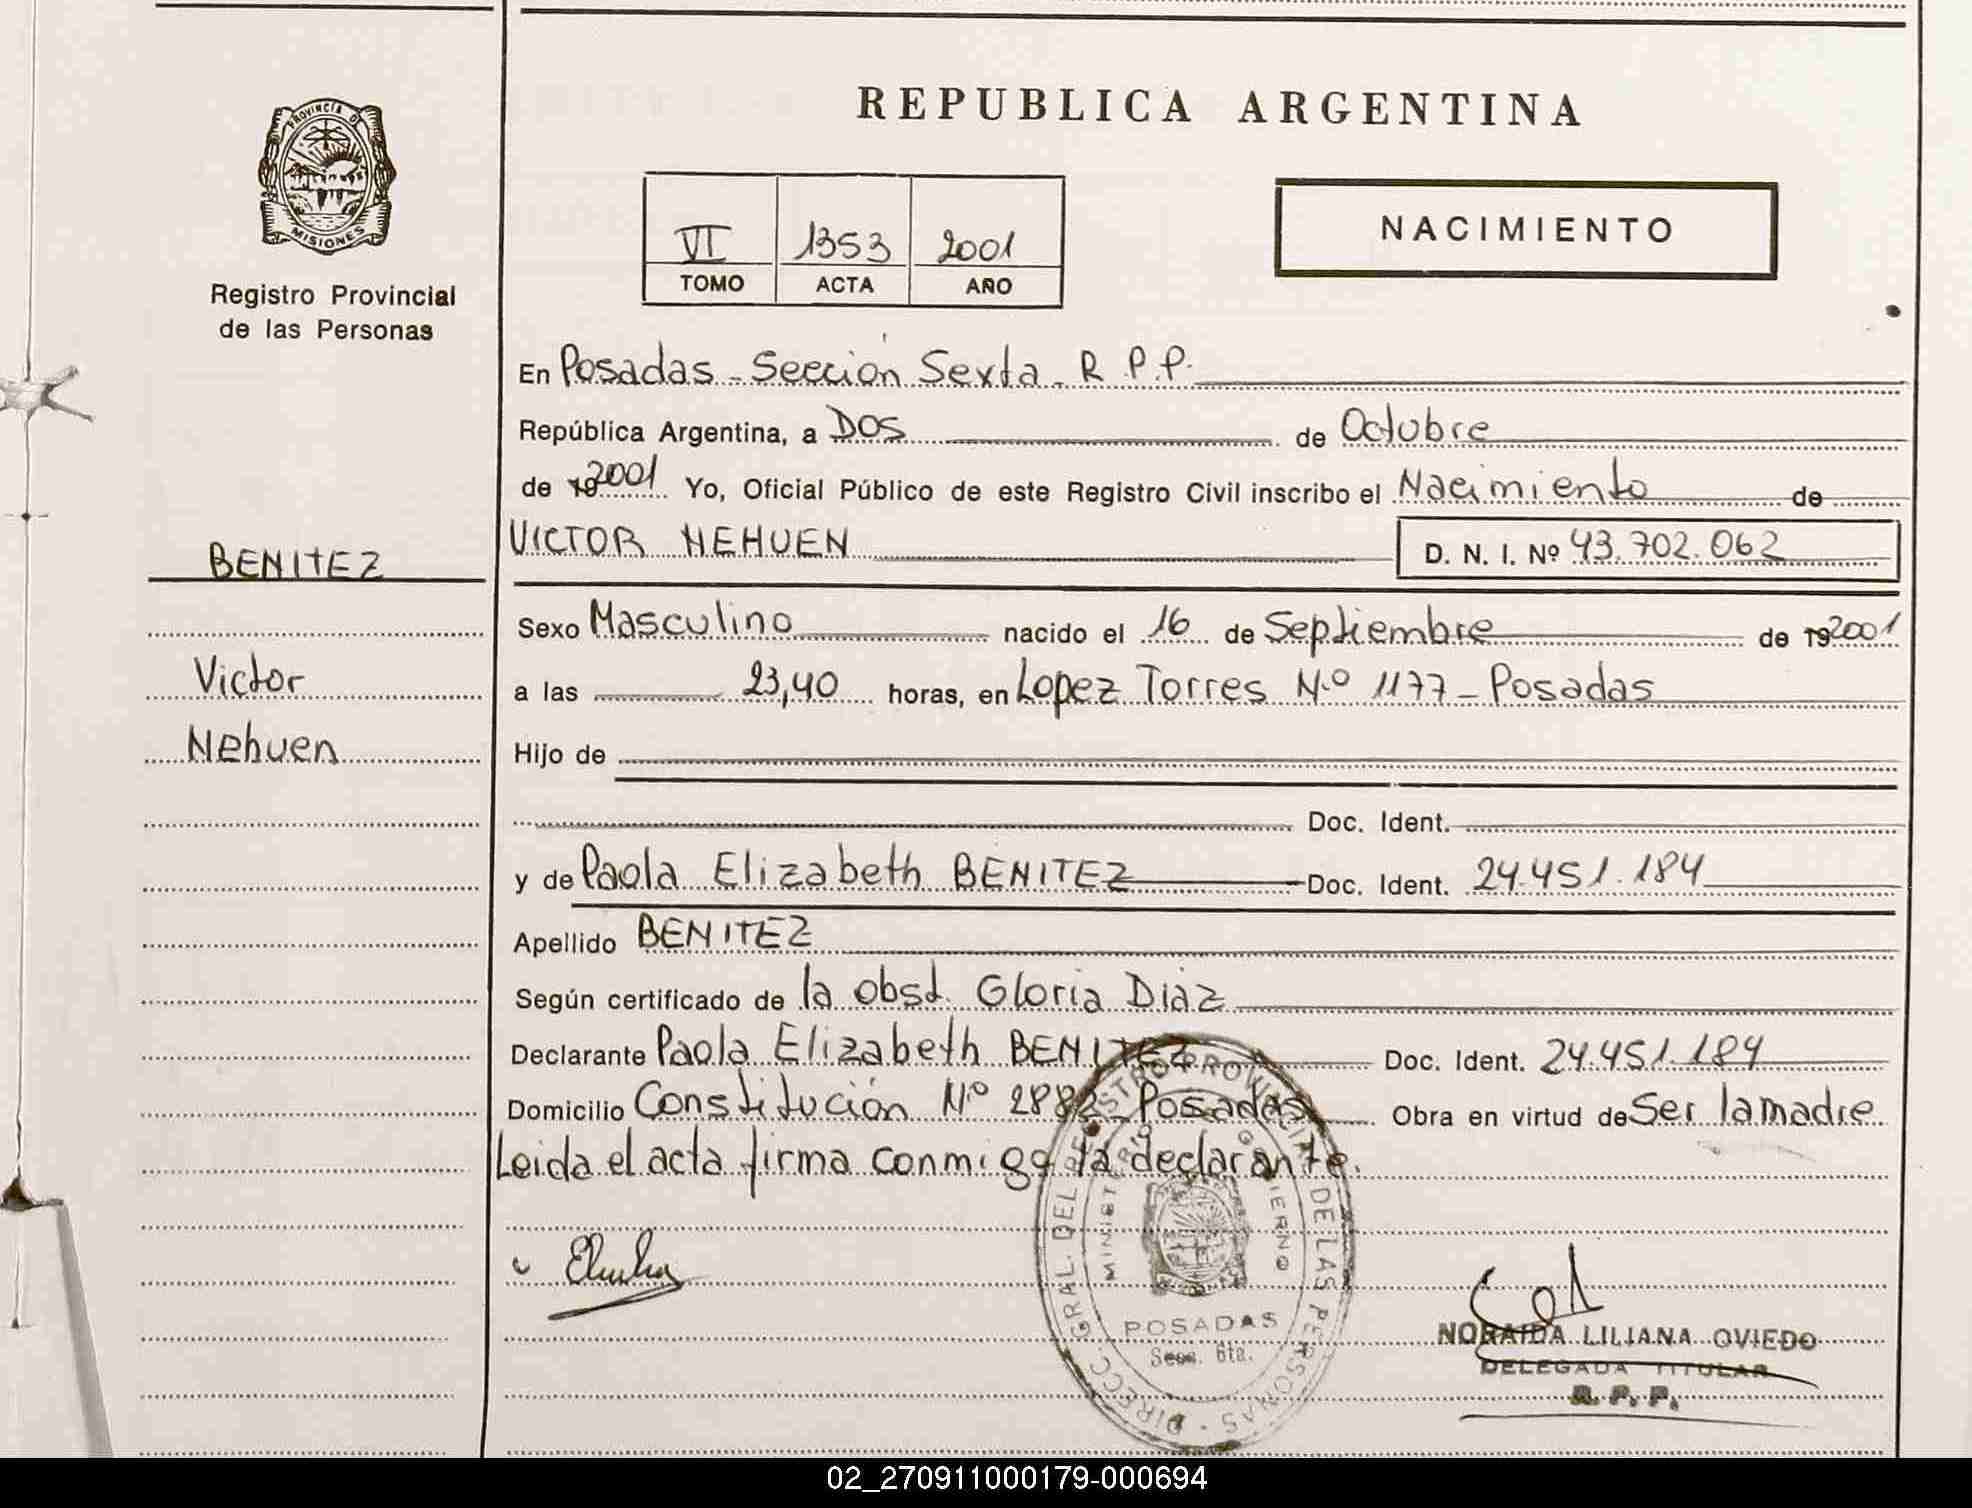 REPUBLICA ARGENTINA
PROVINCIA D
MISIONES
Registro Provincial
de las Personas
VI 1353 2001
TOMO ACTA AÑO
NACIMIENTO
En Posadas - Sección Sexta - R.P.P.
República Argentina, a Dos de Octubre
de 19 2001 Yo, Oficial Público de este Registro Civil inscribo el Nacimiento de
VICTOR NEHUEN D. N. I. Nº 43.702.062
BENITEZ
Victor
Nehuen
Sexo Masculino nacido el 16 de Septiembre de 19 2001
a las 23,40 horas, en Lopez Torres N.º 1177 - Posadas
Hijo de
Doc. Ident.
y de Paola Elizabeth BENITEZ Doc. Ident. 24.451.184
Apellido BENITEZ
Según certificado de la obst. Gloria Diaz
Declarante Paola Elizabeth BENITEZ Doc. Ident. 24.451.184
Domicilio Constitución Nº 2882 Posadas Obra en virtud de Ser la madre
Leida el acta firma conmigo la declarante.
DIRECC. GRAL. DEL REGISTRO PROVINCIAL DE LAS PERSONAS
MINISTERIO GOBIERNO
POSADAS
Secc. 6ta.
NORAIDA LILIANA OVIEDO
DELEGADA TITULAR
R. P. P.
02_270911000179-000694